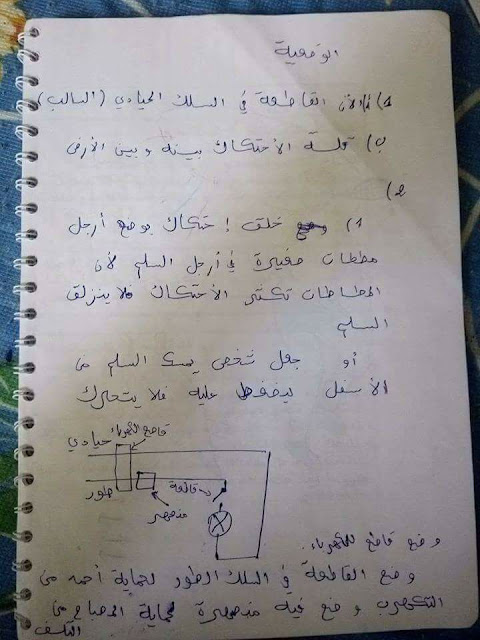 الوضعية
1) أ) لأن القاطعة في السلك الحيادي (السالب)
ب) قلة الاحتكاك بينه وبين الأرض
2)
1) خلق إحتكاك بوضع أرجل
مطاطات صغيرة في أرجل السلم لأن
المطاطات تكثر الاحتكاك فلا ينزلق
السلم
أو جعل شخص يمسك السلم من
الأسفل ليضغط عليه فلا يتحرك
قاطع الكهرباء
حيادي
طور
قاطعة
منصهر
وضع قاطع للكهرباء.
وضع القاطعة في السلك الطور لحماية أحمد من
التكهرب وضع فيه منصهرة لحماية المصباح من
التلف